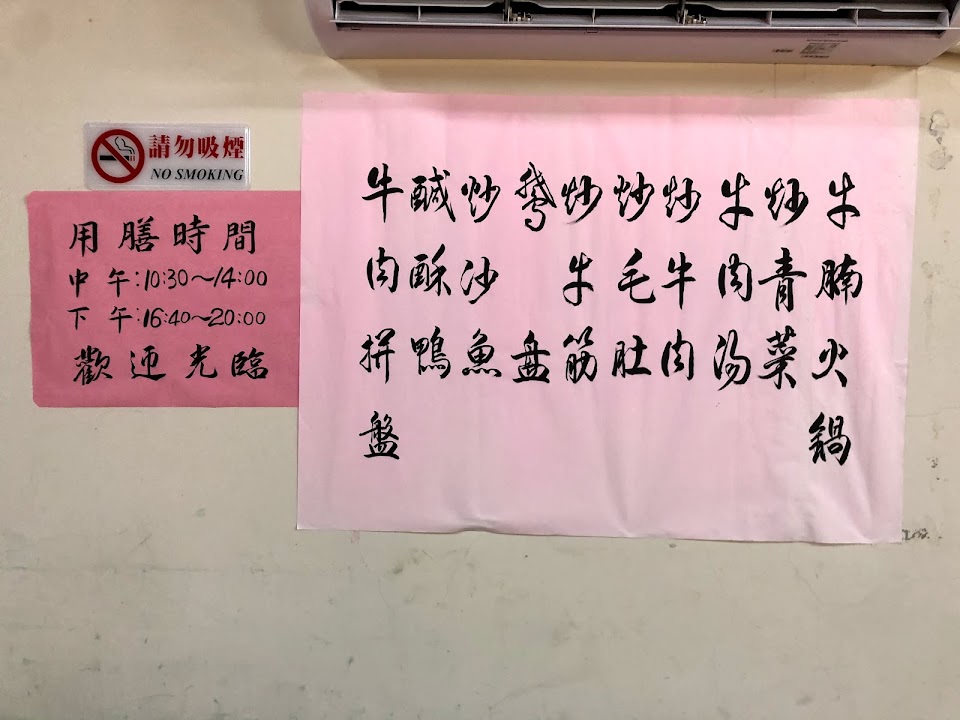 請勿吸煙
NO SMOKING
用膳時間
中午:10:30~14:00
下午:16:40~20:00
歡迎光臨
牛腩火鍋
炒青菜
牛肉湯
炒牛肉
炒毛肚
炒牛筋
鵝盘
炒沙魚
醎酥鴨
牛肉拼盤